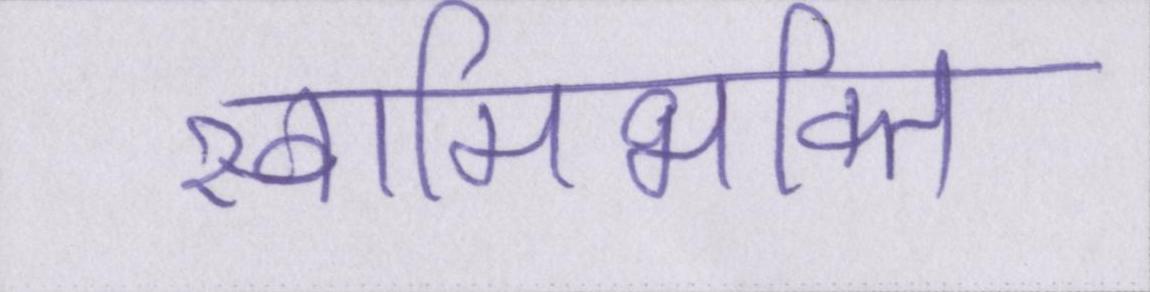 स्वामिभक्ति